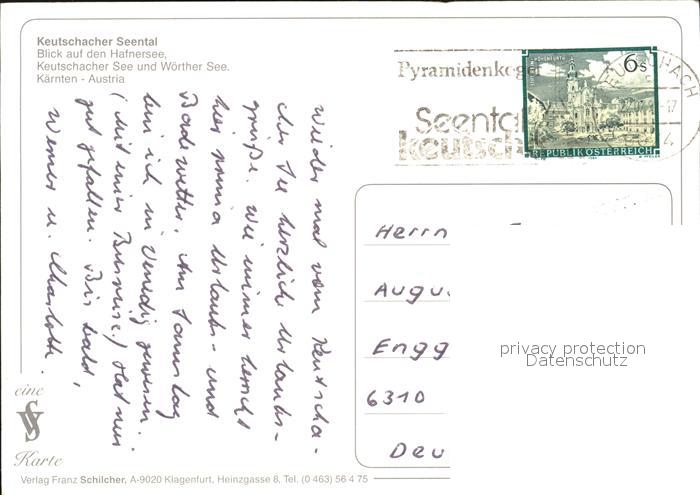 Keutschacher Seental
Blick auf den Hafnersee,
Keutschacher See und Wörther See.
Kärnten - Austria
Pyramidenkogel
Seental
keutsch
HOHENFURTH
6s
REPUBLIK ÖSTERREICH
KEUTSCHACH
Wieder mal vom Keutscha-
cher See herzliche Urlaubs-
grüße. Wie immer herrscht
hier prima Urlaubs- und
Badewetter. Am Samstag
bin ich in Venedig gewesen.
(mit einer Busreise.) Hat mir
gut gefallen. Bis bald,
Werner u. Charlotte.
Herrn
Augu
Engg
6310
Deu
privacy protection
Datenschutz
eine
VS
Karte
Verlag Franz Schilcher, A-9020 Klagenfurt, Heinzgasse 8, Tel. (0 463) 56 4 75